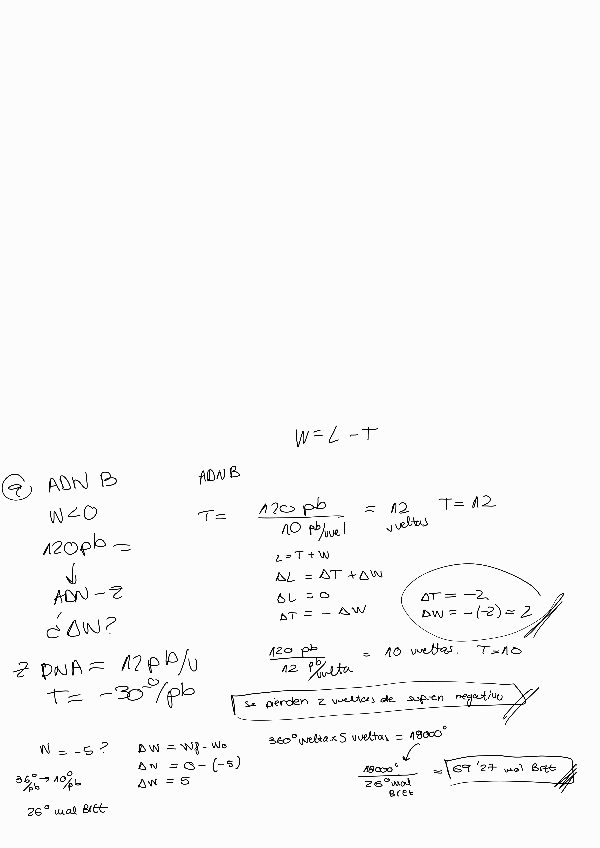 W = L - T
a ADN B
W<0
120pb =
↓
ADN - Z
¿ΔW?
Z DNA = 12pb/v
T = -30°/pb
ADN B
T = 120 pb / 10 pb/vuel = 12 vueltas T = 12
L = T + W
ΔL = ΔT + ΔW
ΔL = 0
ΔT = - ΔW
ΔT = -2
ΔW = -(-2) = 2
120 pb / 12 pb/vuelta = 10 vueltas. T = 10
Se pierden 2 vueltas de superen negativo
W = -5?
36°/pb → 10°/pb
26° mol BrEt
ΔW = Wf - W0
ΔW = 0 - (-5)
ΔW = 5
360° vuelta x 5 vueltas = 18000°
18000° / 26° mol BrEt = 69'27 mol BrEt